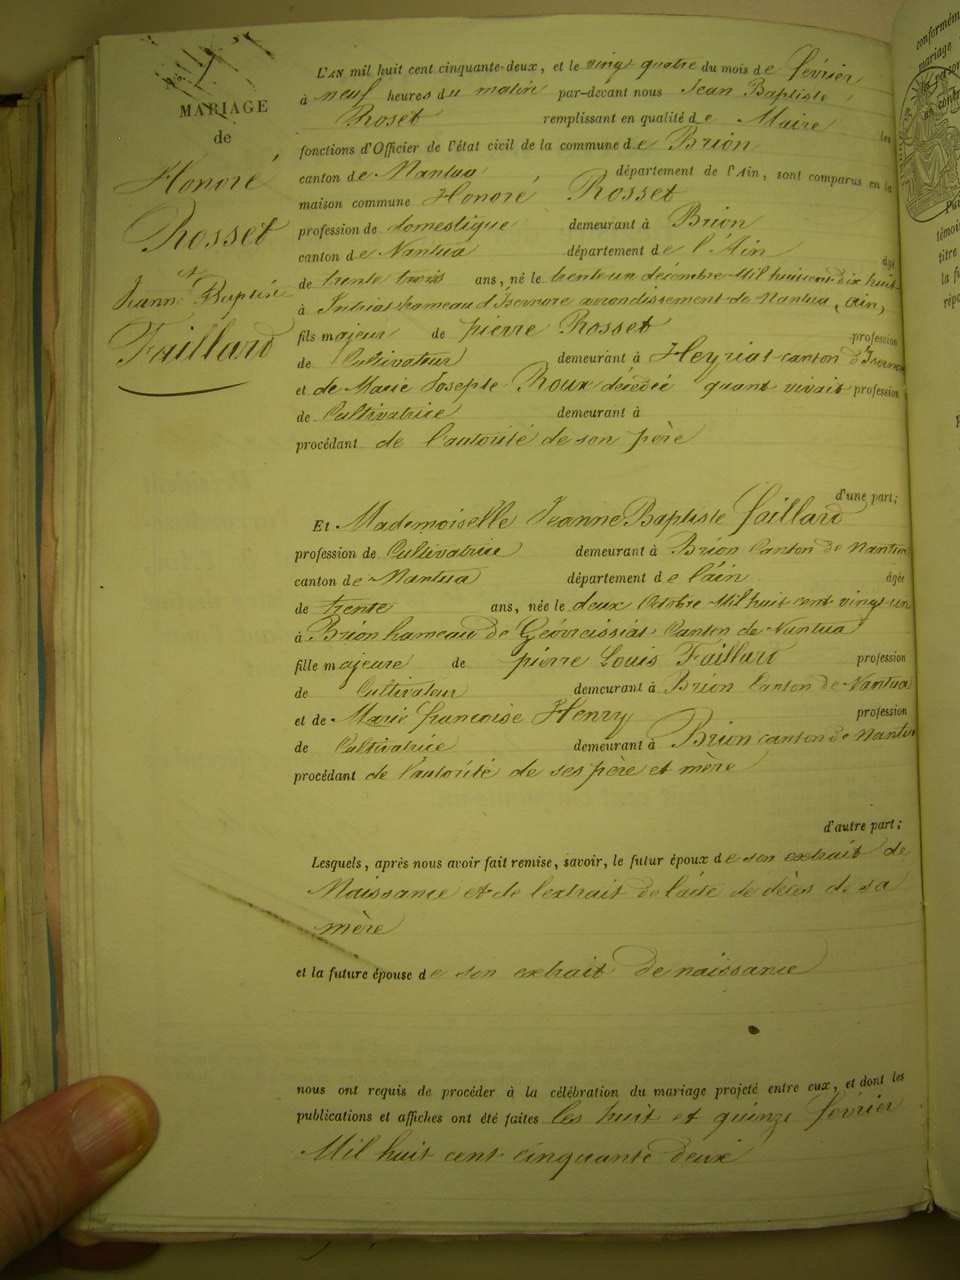 MARIAGE
de
Honoré
Rosset
et
Jeanne Baptiste
Faillard
L'AN mil huit cent cinquante-deux, et le vingt quatre du mois de février
à neuf heures du matin par-devant nous Jean Baptiste
Roset remplissant en qualité de Maire les
fonctions d'Officier de l'état civil de la commune de Brion
canton de Nantua département de l'Ain, sont comparus en la
maison commune Honoré Rosset
profession de domestique demeurant à Brion
canton de Nantua département de l'Ain âgé
de trente trois ans, né le trente un décembre Mil huit cent dix huit
à hameau d'Isernore arrondissement de Nantua, (ain)
fils majeur de pierre Rosset profession
de Cultivateur demeurant à Heyriat canton d'Isernore
et de Marie Josepte Roux décédée quant vivait profession
de Cultivatrice demeurant à
procédant de l'autorité de son père
d'une part;
Et Mademoiselle Jeanne Baptiste faillard
profession de Cultivatrice demeurant à Brion Canton de Nantua
canton de Nantua département de l'ain âgée
de trente ans, née le deux Octobre Mil huit cent vingt un
à Brion hameau de Géovreissiat Canton de Nantua
fille majeure de pierre Louis Faillard profession
de Cultivateur demeurant à Brion Canton de Nantua
et de Marie françoise Henry profession
de Cultivatrice demeurant à Brion canton de Nantua
procédant de l'autorité de ses père et mère
d'autre part;
Lesquels, après nous avoir fait remise, savoir, le futur époux de son extrait de
Naissance et de l'extrait de l'acte de décès de sa
mère
et la future épouse de son extrait de naissance
nous ont requis de procéder à la célébration du mariage projeté entre eux, et dont les
publications et affiches ont été faites les huit et quinze février
Mil huit cent cinquante deux
conformém
mariage